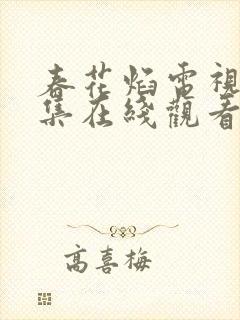 春花焰電視
集在綫觀看
高喜梅